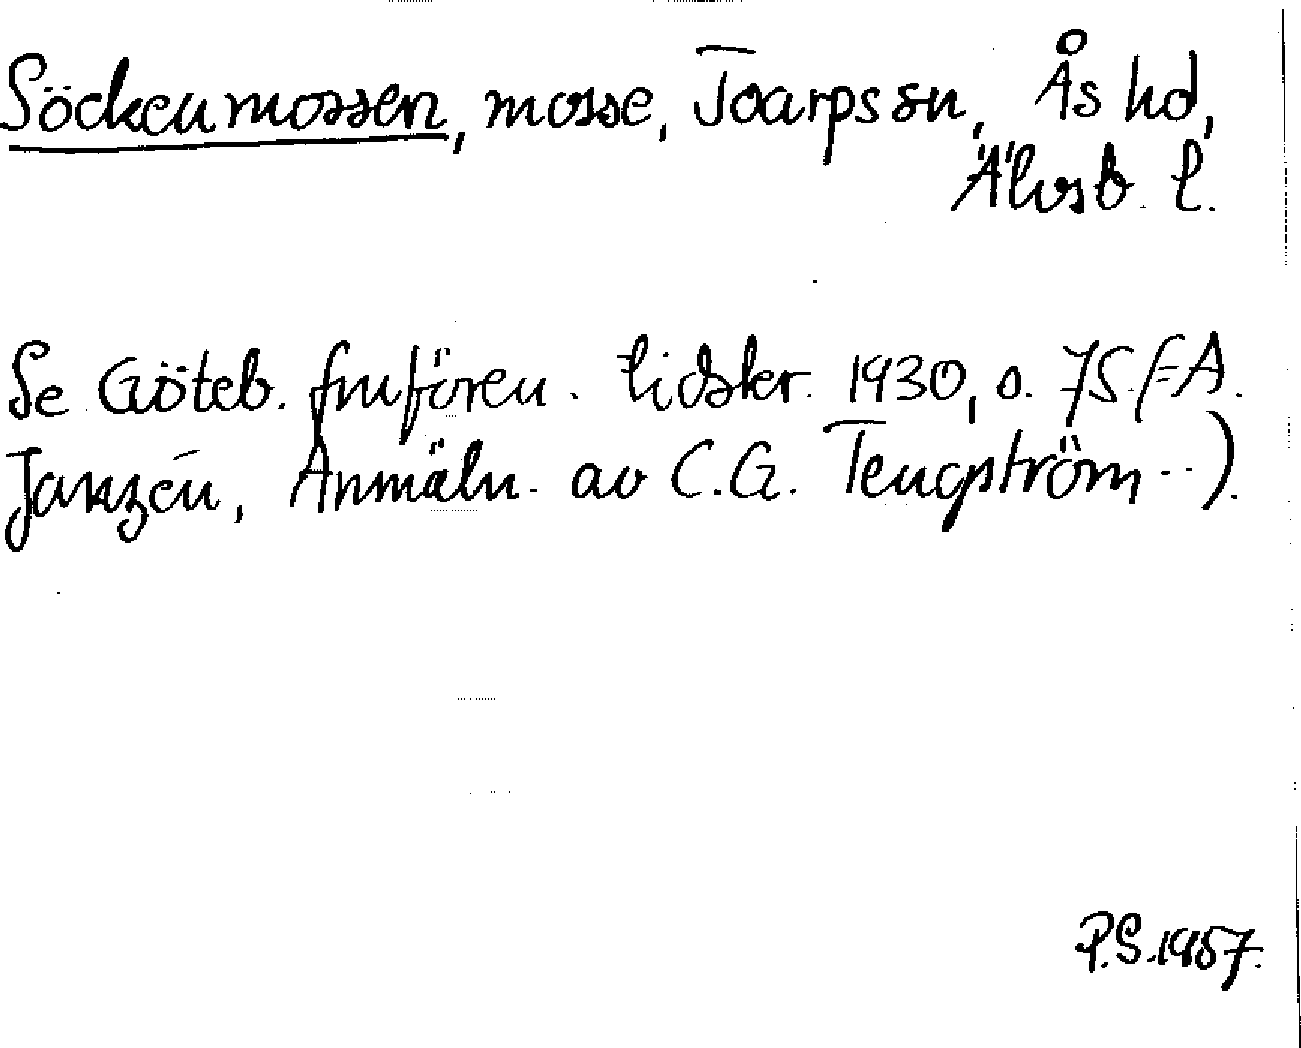 Söckenmossen, mosse, Toarps sn, Ås hd,
Älvsb. l.
Se Göteb. fmfören. tidskr. 1930, s. 75 (=A.
Janzén, Anmäln. av C.G. Tengström ..).
P.S. 1957.